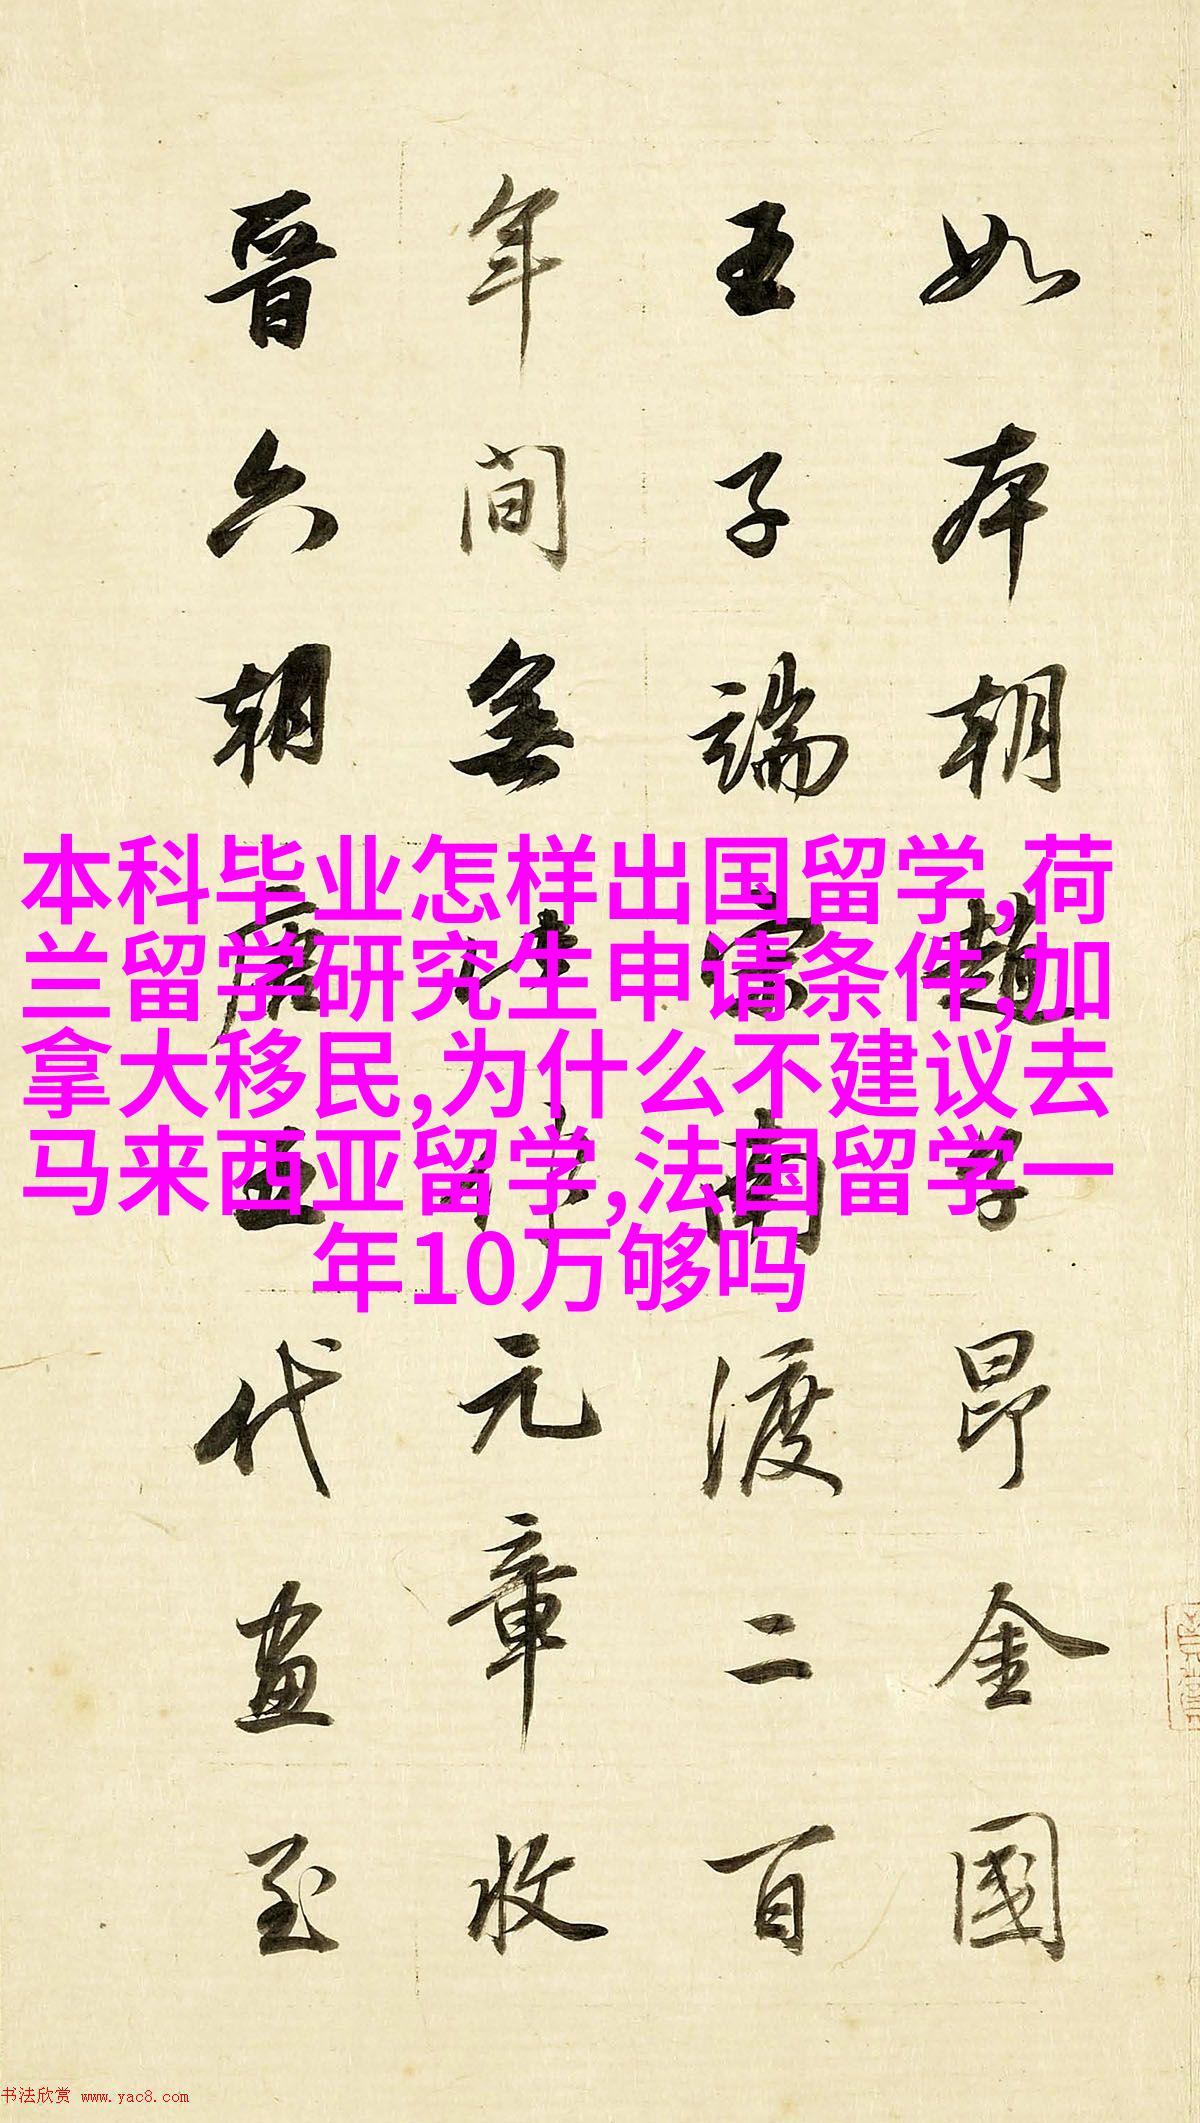 如本朝趙子昂金國
王子端宋南渡二百
年間無此作元章收
晉六朝唐五代畫至
本科毕业怎样出国留学,荷
兰留学研究生申请条件,加
拿大移民,为什么不建议去
马来西亚留学,法国留学一
年10万够吗
书法欣赏 www.yac8.com